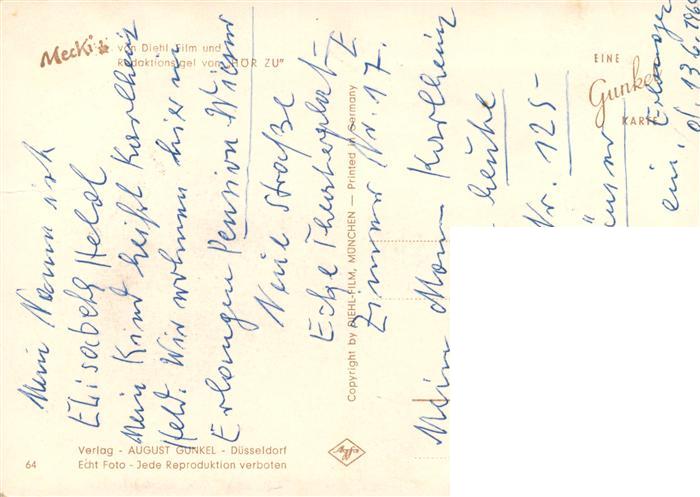 Mecki von Diehl Film und
Redaktionsigel von "HÖR ZU"
EINE
Gunkel
KARTE
Copyright by DIEHL-FILM, MÜNCHEN — Printed in Germany
Mein Namen ist
Elisabeth Held
Mein Kind heißt Karlheinz
Held. Wir wohnen hier in
Erlangen Pension Wiener
Neue Straße
Ecke Theaterplatz
Zimmer Nr. 17.
Mein Mann Karlheinz
heute
Nr. 125-
ein. Erlangen
13.6.
Verlag - AUGUST GUNKEL - Düsseldorf
64 Echt Foto - Jede Reproduktion verboten
Agfa